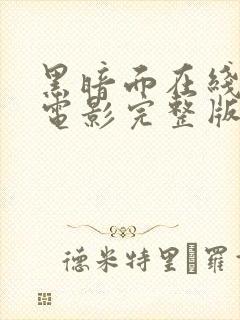 黑暗而在綫
電影完整版
德米特里·羅